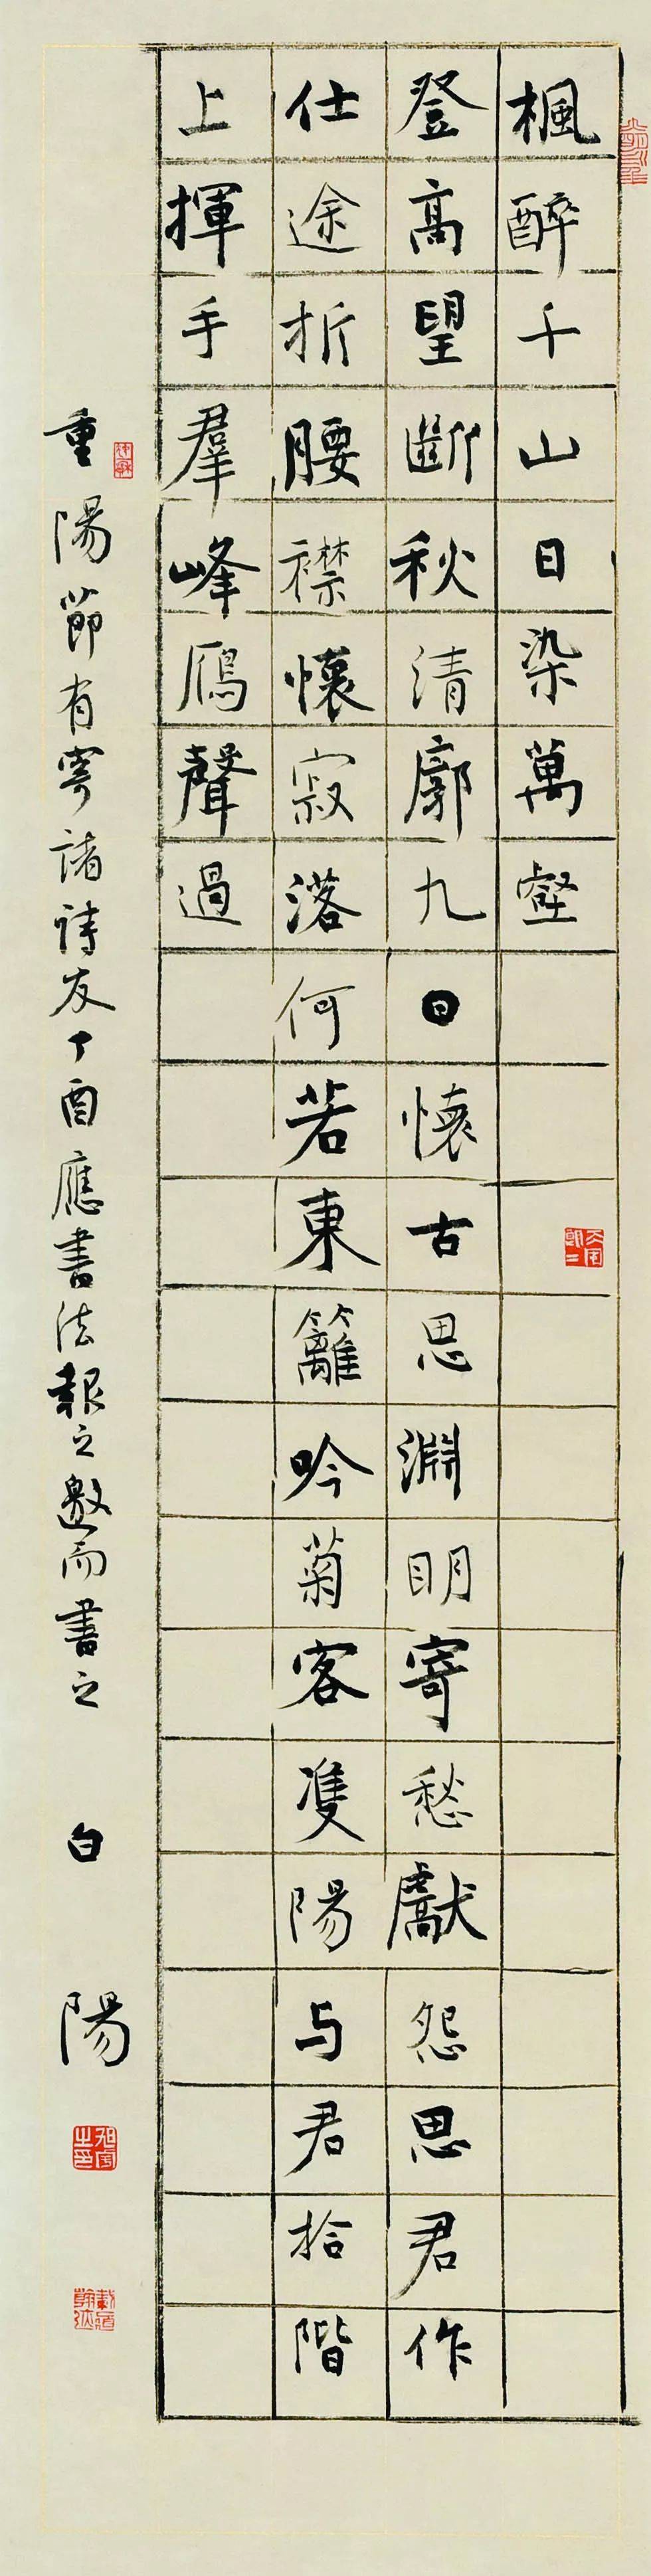 楓醉千山日染萬壑
登高望斷秋清廓九日懷古思淵明寄愁獻怨思君作
仕途折腰襟懷寂落何若東籬吟菊客隻陽与君拾階
上揮手羣峰鴈聲過
重陽節有寄諸詩友丁酉應書法報之邀而書之
白陽